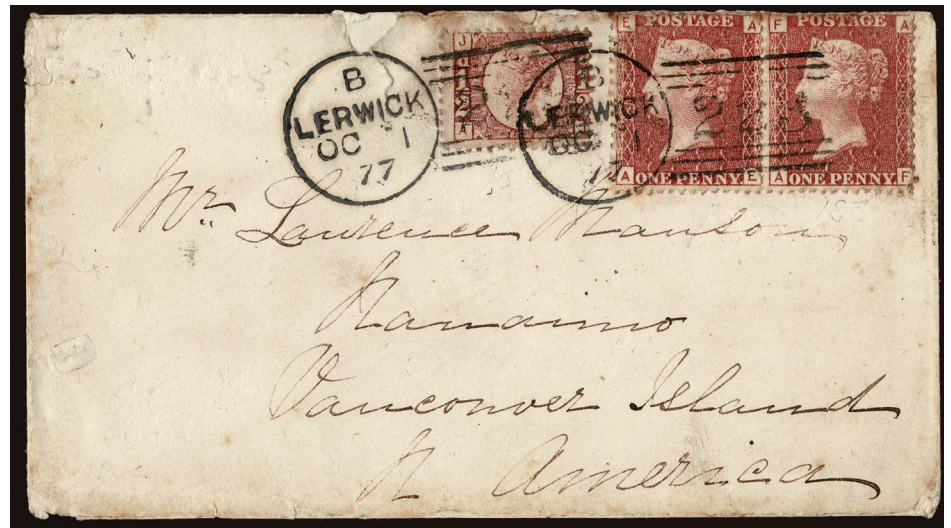 B
LERWICK
OC 1
77
B
LERWICK
OC 1
E POSTAGE A
A ONE PENNY E
F POSTAGE A
A ONE PENNY F
Mr. Laurence Manson
Nanaimo
Vanconver Island
N America